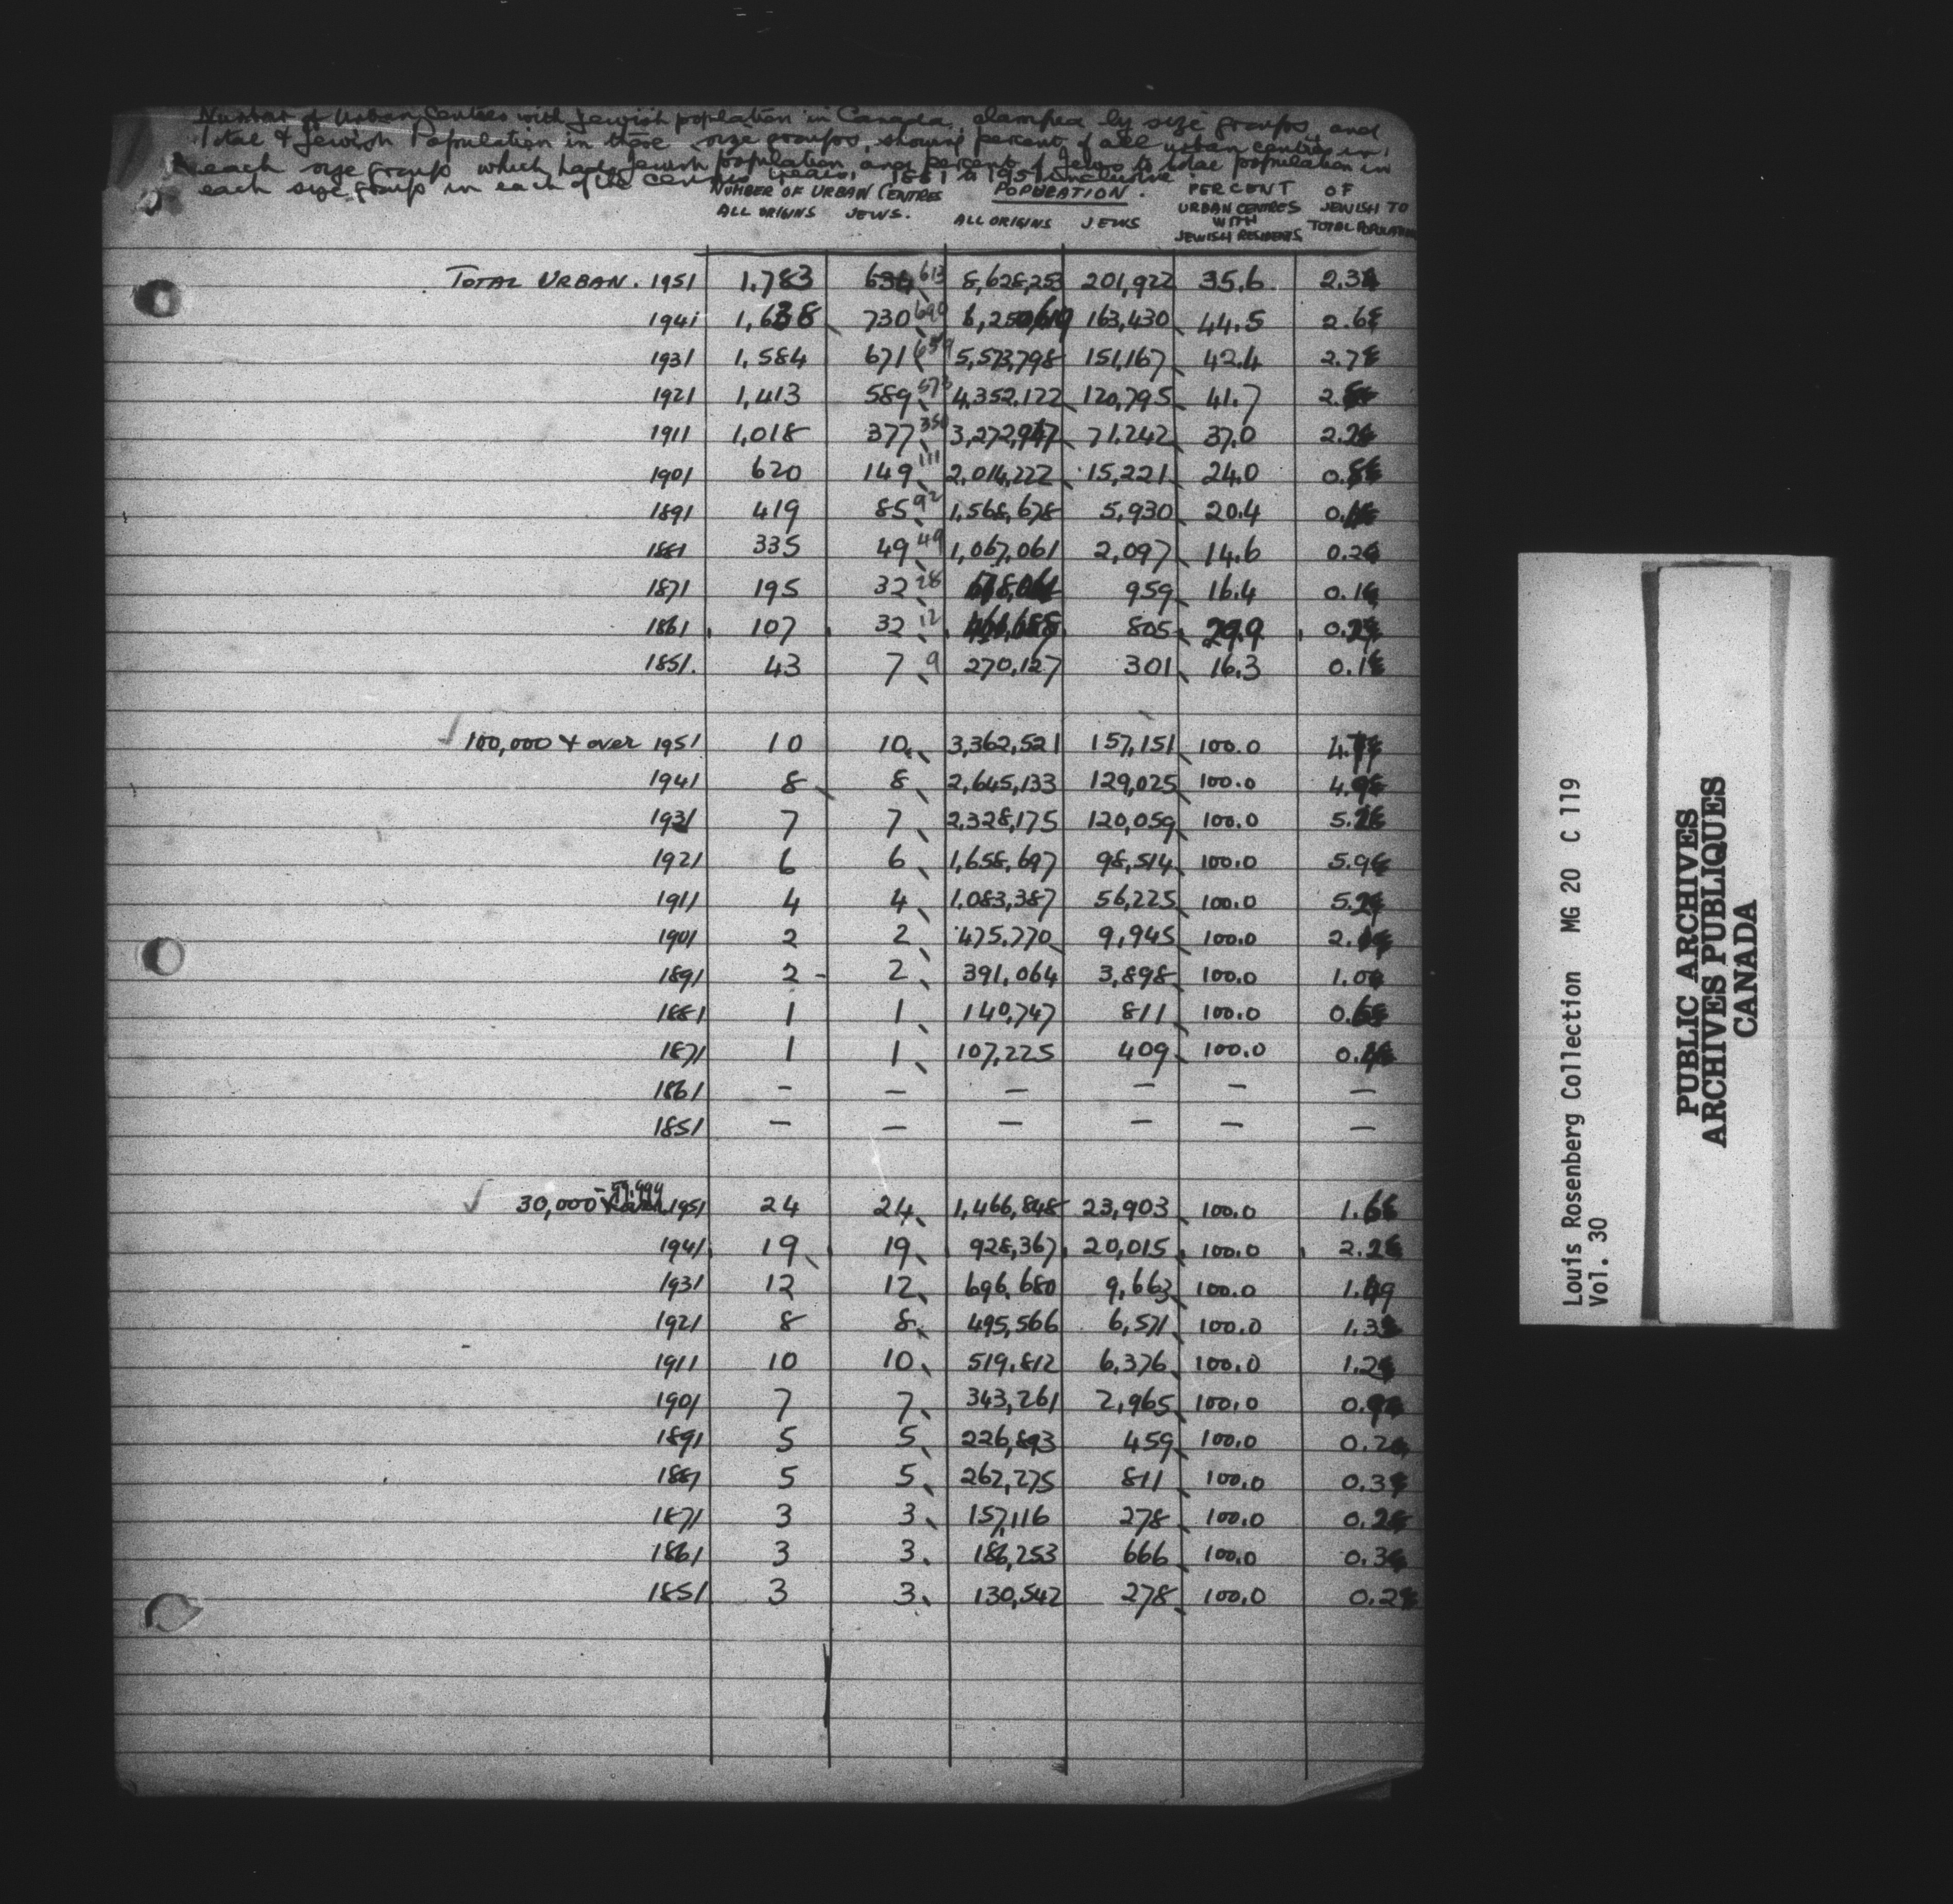 Number of Urban Centres with Jewish population in Canada, by size groups, and
Total & Jewish Population in these size groups, showing percent of all urban centres in
each size group which had Jewish population and percent of Jews to total population in
each size group in each of the census years, 1851 to 1951 inclusive
NUMBER OF URBAN CENTRES POPULATION. PERCENT OF
ALL ORIGINS JEWS. ALL ORIGINS JEWS URBAN CENTRES WITH JEWISH RESIDENTS JEWISH TO TOTAL POPULATION
TOTAL URBAN. 1951 1,783 634 613 8,628,253 201,922 35.6 2.3
1941 1,638 730 690 6,250,619 163,430 44.5 2.6
1931 1,584 671 659 5,573,798 151,167 42.4 2.7
1921 1,413 589 573 4,352,122 120,795 41.7 2.
1911 1,018 377 350 3,272,947 71,242 37.0 2.2
1901 620 149 111 2,014,222 15,221 24.0 0.
1891 419 85 92 1,568,678 5,930 20.4 0.
1881 335 49 49 1,067,061 2,097 14.6 0.2
1871 195 32 28 959 16.4 0.1
1861 107 32 12 805 29.9 0.2
1851. 43 7 9 270,127 301 16.3 0.1
✓ 100,000 & over 1951 10 10 3,362,521 157,151 100.0 4.7
1941 8 8 2,645,133 129,025 100.0 4.9
1931 7 7 2,328,175 120,059 100.0 5.2
1921 6 6 1,658,697 98,514 100.0 5.9
1911 4 4 1,083,387 56,225 100.0 5.2
1901 2 2 475,770 9,945 100.0 2.
1891 2 - 2 391,064 3,898 100.0 1.0
1881 1 1 140,747 811 100.0 0.6
1871 1 1 107,225 409 100.0 0.4
1861 — — — — — —
1851 — — — — — —
✓ 30,000 - 99,999 1951 24 24 1,466,848 23,903 100.0 1.6
1941 19 19 928,367 20,015 100.0 2.2
1931 12 12 696,680 9,663 100.0 1.49
1921 8 8 495,566 6,571 100.0 1.3
1911 10 10 519,812 6,376 100.0 1.2
1901 7 7 343,261 2,965 100.0 0.9
1891 5 5 226,893 459 100.0 0.2
1881 5 5 262,275 811 100.0 0.3
1871 3 3 157,116 278 100.0 0.2
1861 3 3 186,253 666 100.0 0.3
1851 3 3 130,542 278 100.0 0.2
Louis Rosenberg Collection MG 20 C 119
Vol. 30
PUBLIC ARCHIVES
ARCHIVES PUBLIQUES
CANADA